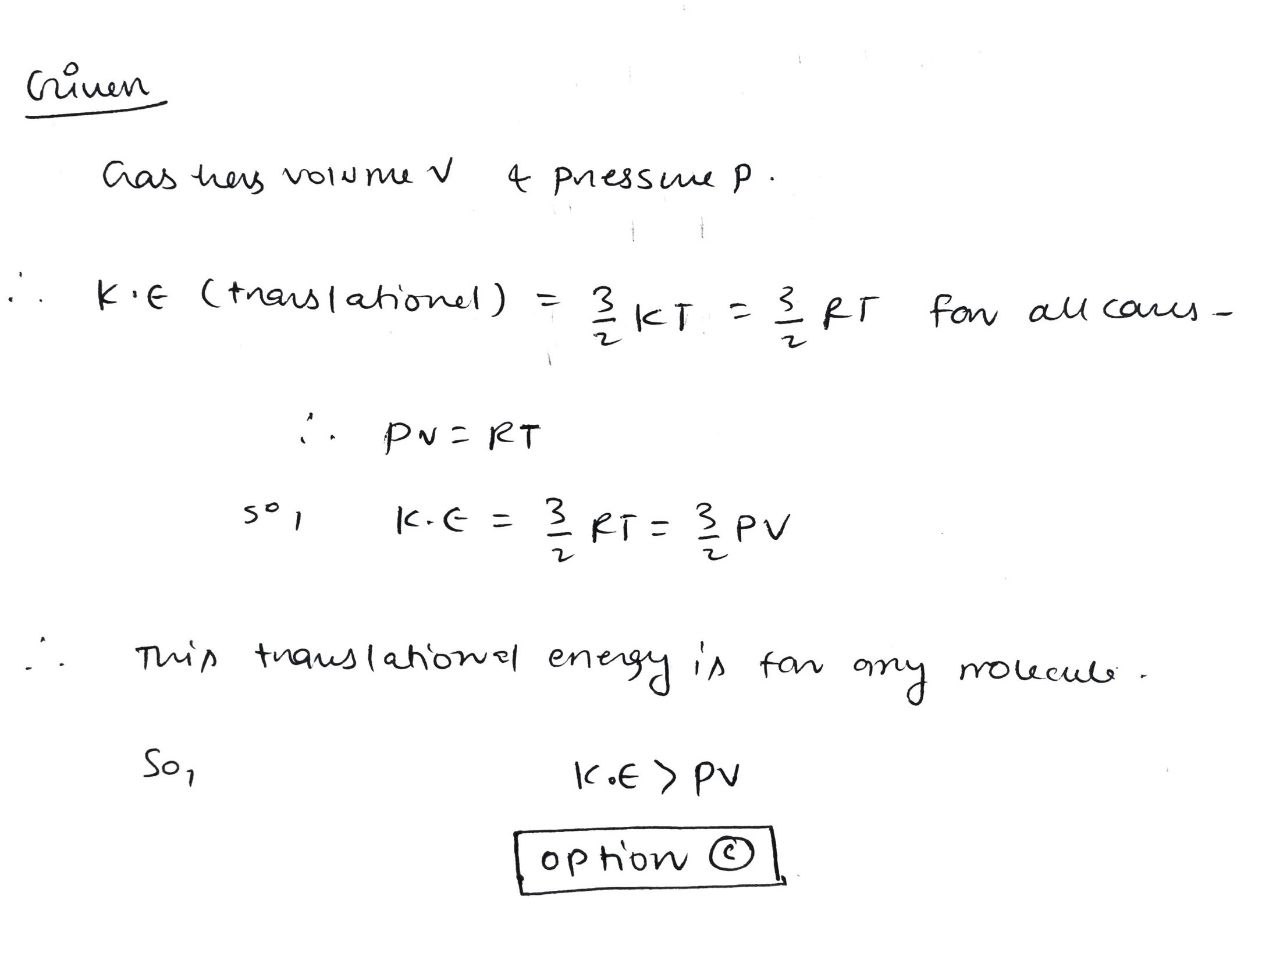 Given
Gas has volume V & pressure P.
∴ K.E (translational) = 3/2 KT = 3/2 RT for all cases-
∴ PV = RT
so, K.E = 3/2 RT = 3/2 PV
∴ This translational energy is for any molecule.
So, K.E > PV
option (c)